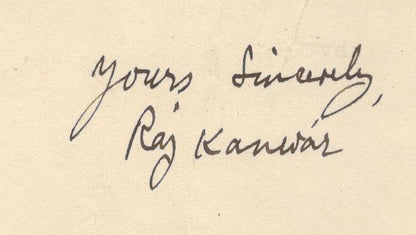 Yours Sincerely,
Ráj Kanwár